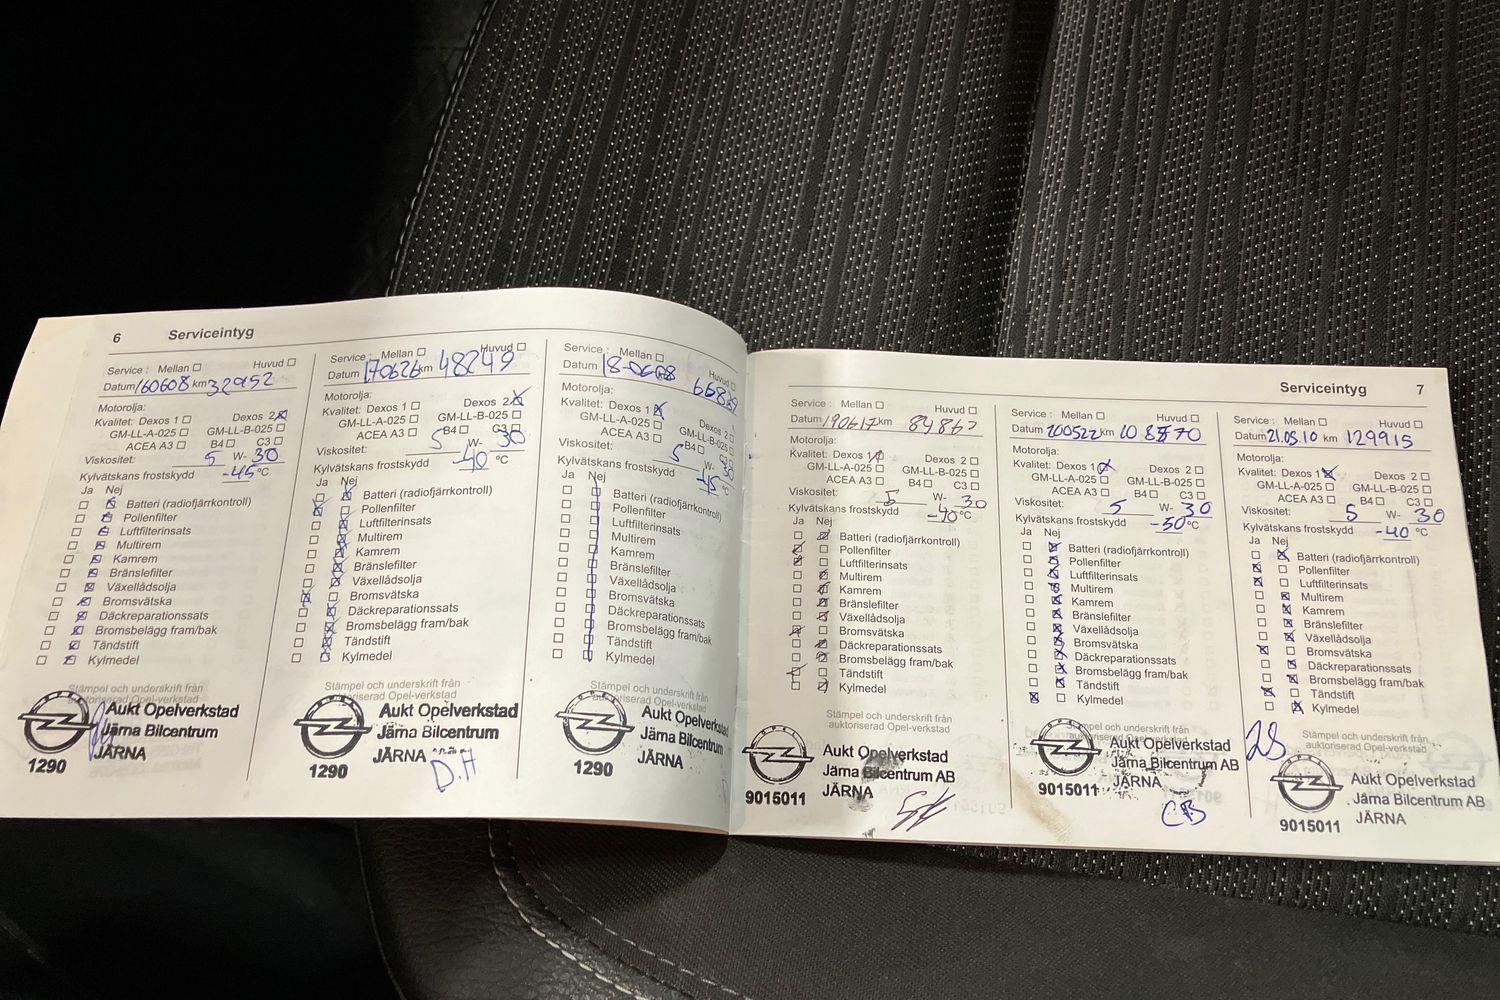 6 Serviceintyg
Service: Mellan ☐ Huvud ☐
Datum 160608 km 32952
Motorolja:
Kvalitet: Dexos 1 ☐ Dexos 2 ☒
GM-LL-A-025 ☐ GM-LL-B-025 ☐
ACEA A3 ☐ B4 ☐ C3 ☐
Viskositet: 5 W- 30
Kylvätskans frostskydd -45 °C
Ja Nej
☐ ☒ Batteri (radiofjärrkontroll)
☐ ☒ Pollenfilter
☐ ☒ Luftfilterinsats
☐ ☒ Multirem
☐ ☒ Kamrem
☐ ☒ Bränslefilter
☐ ☒ Växellådsolja
☐ ☒ Bromsvätska
☐ ☒ Däckreparationssats
☐ ☒ Bromsbelägg fram/bak
☐ ☒ Tändstift
☐ ☒ Kylmedel
Stämpel och underskrift från
auktoriserad Opel-verkstad
OPEL
Aukt Opelverkstad
Järna Bilcentrum
JÄRNA
1290
Service: Mellan ☐ Huvud ☐
Datum 170626 km 48249
Motorolja:
Kvalitet: Dexos 1 ☐ Dexos 2 ☒
GM-LL-A-025 ☐ GM-LL-B-025 ☐
ACEA A3 ☐ B4 ☐ C3 ☐
Viskositet: 5 W- 30
Kylvätskans frostskydd -40 °C
Ja Nej
☐ ☒ Batteri (radiofjärrkontroll)
☒ ☐ Pollenfilter
☐ ☒ Luftfilterinsats
☐ ☒ Multirem
☐ ☒ Kamrem
☐ ☒ Bränslefilter
☐ ☒ Växellådsolja
☒ ☐ Bromsvätska
☐ ☒ Däckreparationssats
☐ ☒ Bromsbelägg fram/bak
☐ ☒ Tändstift
☐ ☒ Kylmedel
Stämpel och underskrift från
auktoriserad Opel-verkstad
OPEL
Aukt Opelverkstad
Järna Bilcentrum
JÄRNA
1290
D.H
Service: Mellan ☐ Huvud ☐
Datum 18-0608
Motorolja:
Kvalitet: Dexos 1 ☒ Dexos 2 ☐
GM-LL-A-025 ☐ GM-LL-B-025 ☐
ACEA A3 ☐ B4 ☐ C3 ☐
Viskositet: 5 W- 30
Kylvätskans frostskydd -45 °C
Ja Nej
☐ ☐ Batteri (radiofjärrkontroll)
☐ ☐ Pollenfilter
☐ ☐ Luftfilterinsats
☐ ☐ Multirem
☐ ☐ Kamrem
☐ ☐ Bränslefilter
☐ ☐ Växellådsolja
☐ ☐ Bromsvätska
☐ ☐ Däckreparationssats
☐ ☐ Bromsbelägg fram/bak
☐ ☐ Tändstift
☐ ☐ Kylmedel
Stämpel och underskrift från
auktoriserad Opel-verkstad
OPEL
Aukt Opelverkstad
Järna Bilcentrum
JÄRNA
1290
Serviceintyg 7
Service: Mellan ☐ Huvud ☐
Datum 190617 km 84867
Motorolja:
Kvalitet: Dexos 1 ☒ Dexos 2 ☐
GM-LL-A-025 ☐ GM-LL-B-025 ☐
ACEA A3 ☐ B4 ☐ C3 ☐
Viskositet: 5 W- 30
Kylvätskans frostskydd -40 °C
Ja Nej
☐ ☒ Batteri (radiofjärrkontroll)
☒ ☐ Pollenfilter
☒ ☐ Luftfilterinsats
☐ ☒ Multirem
☐ ☒ Kamrem
☐ ☒ Bränslefilter
☐ ☒ Växellådsolja
☒ ☐ Bromsvätska
☐ ☒ Däckreparationssats
☐ ☒ Bromsbelägg fram/bak
☒ ☐ Tändstift
☐ ☒ Kylmedel
Stämpel och underskrift från
auktoriserad Opel-verkstad
OPEL
Aukt Opelverkstad
Järna Bilcentrum AB
JÄRNA
9015011
Service: Mellan ☐ Huvud ☐
Datum 200522 km 108570
Motorolja:
Kvalitet: Dexos 1 ☒ Dexos 2 ☐
GM-LL-A-025 ☐ GM-LL-B-025 ☐
ACEA A3 ☐ B4 ☐ C3 ☐
Viskositet: 5 W- 30
Kylvätskans frostskydd -50 °C
Ja Nej
☐ ☒ Batteri (radiofjärrkontroll)
☐ ☒ Pollenfilter
☐ ☒ Luftfilterinsats
☐ ☒ Multirem
☐ ☒ Kamrem
☐ ☒ Bränslefilter
☐ ☒ Växellådsolja
☐ ☒ Bromsvätska
☐ ☒ Däckreparationssats
☐ ☒ Bromsbelägg fram/bak
☐ ☒ Tändstift
☒ ☐ Kylmedel
Stämpel och underskrift från
auktoriserad Opel-verkstad
OPEL
Aukt Opelverkstad
Järna Bilcentrum AB
JÄRNA
9015011
CB
Service: Mellan ☐ Huvud ☐
Datum 21.05.10 km 129915
Motorolja:
Kvalitet: Dexos 1 ☒ Dexos 2 ☐
GM-LL-A-025 ☐ GM-LL-B-025 ☐
ACEA A3 ☐ B4 ☐ C3 ☐
Viskositet: 5 W- 30
Kylvätskans frostskydd -40 °C
Ja Nej
☐ ☒ Batteri (radiofjärrkontroll)
☒ ☐ Pollenfilter
☒ ☐ Luftfilterinsats
☐ ☒ Multirem
☐ ☒ Kamrem
☐ ☒ Bränslefilter
☐ ☒ Växellådsolja
☒ ☐ Bromsvätska
☐ ☒ Däckreparationssats
☐ ☒ Bromsbelägg fram/bak
☒ ☐ Tändstift
☐ ☒ Kylmedel
Stämpel och underskrift från
auktoriserad Opel-verkstad
OPEL
Aukt Opelverkstad
Järna Bilcentrum AB
JÄRNA
9015011